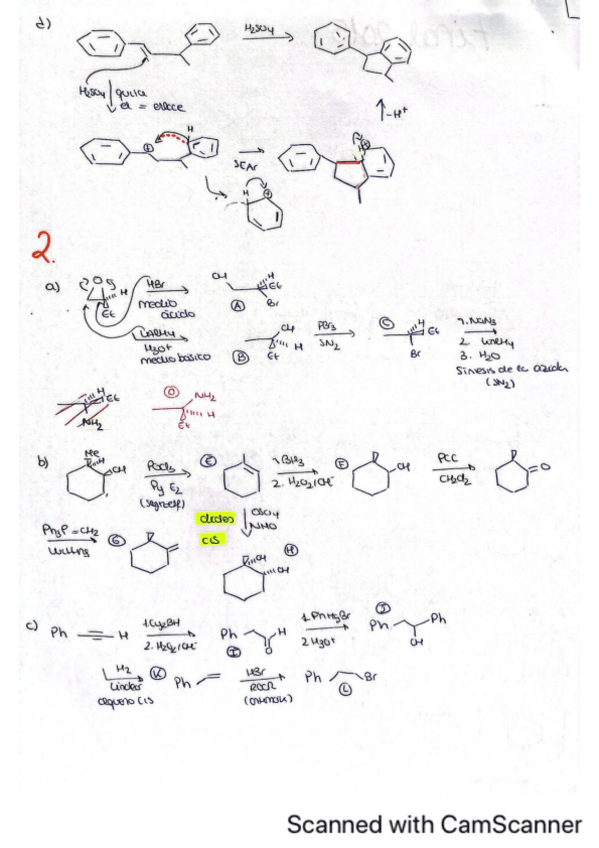 d)
H₂SO₄
H₂SO₄
el = enlace
-H⁺
H
SEAr
H
2.
a)
O
H
Et
HBr
medio
ácido
OH
H
Et
Br
A
LiAlH₄
H₃O⁺
medio básico
B
OH
H
Et
PBr₃
SN₂
C
H
Et
Br
1. NaN₃
2. LiAlH₄
3. H₂O
Síntesis de la azida
(SN₂)
H
Et
NH₂
D
NH₂
H
Et
b)
Me
H
OH
POCl₃
Py E₂
E
1. BH₃
2. H₂O₂/OH⁻
F
OH
PCC
CH₂Cl₂
O
Ph₃P=CH₂
Wittig
G
dioles
cis
OsO₄
NMO
H
OH
OH
c)
Ph
H
1. Cy₂BH
2. H₂O₂/OH⁻
Ph
H
O
I
1. PhMgBr
2. H₃O⁺
J
Ph
Ph
OH
H₂
Lindlar
alqueno cis
K
Ph
HBr
ROOR
Ph
Br
L
Scanned with CamScanner